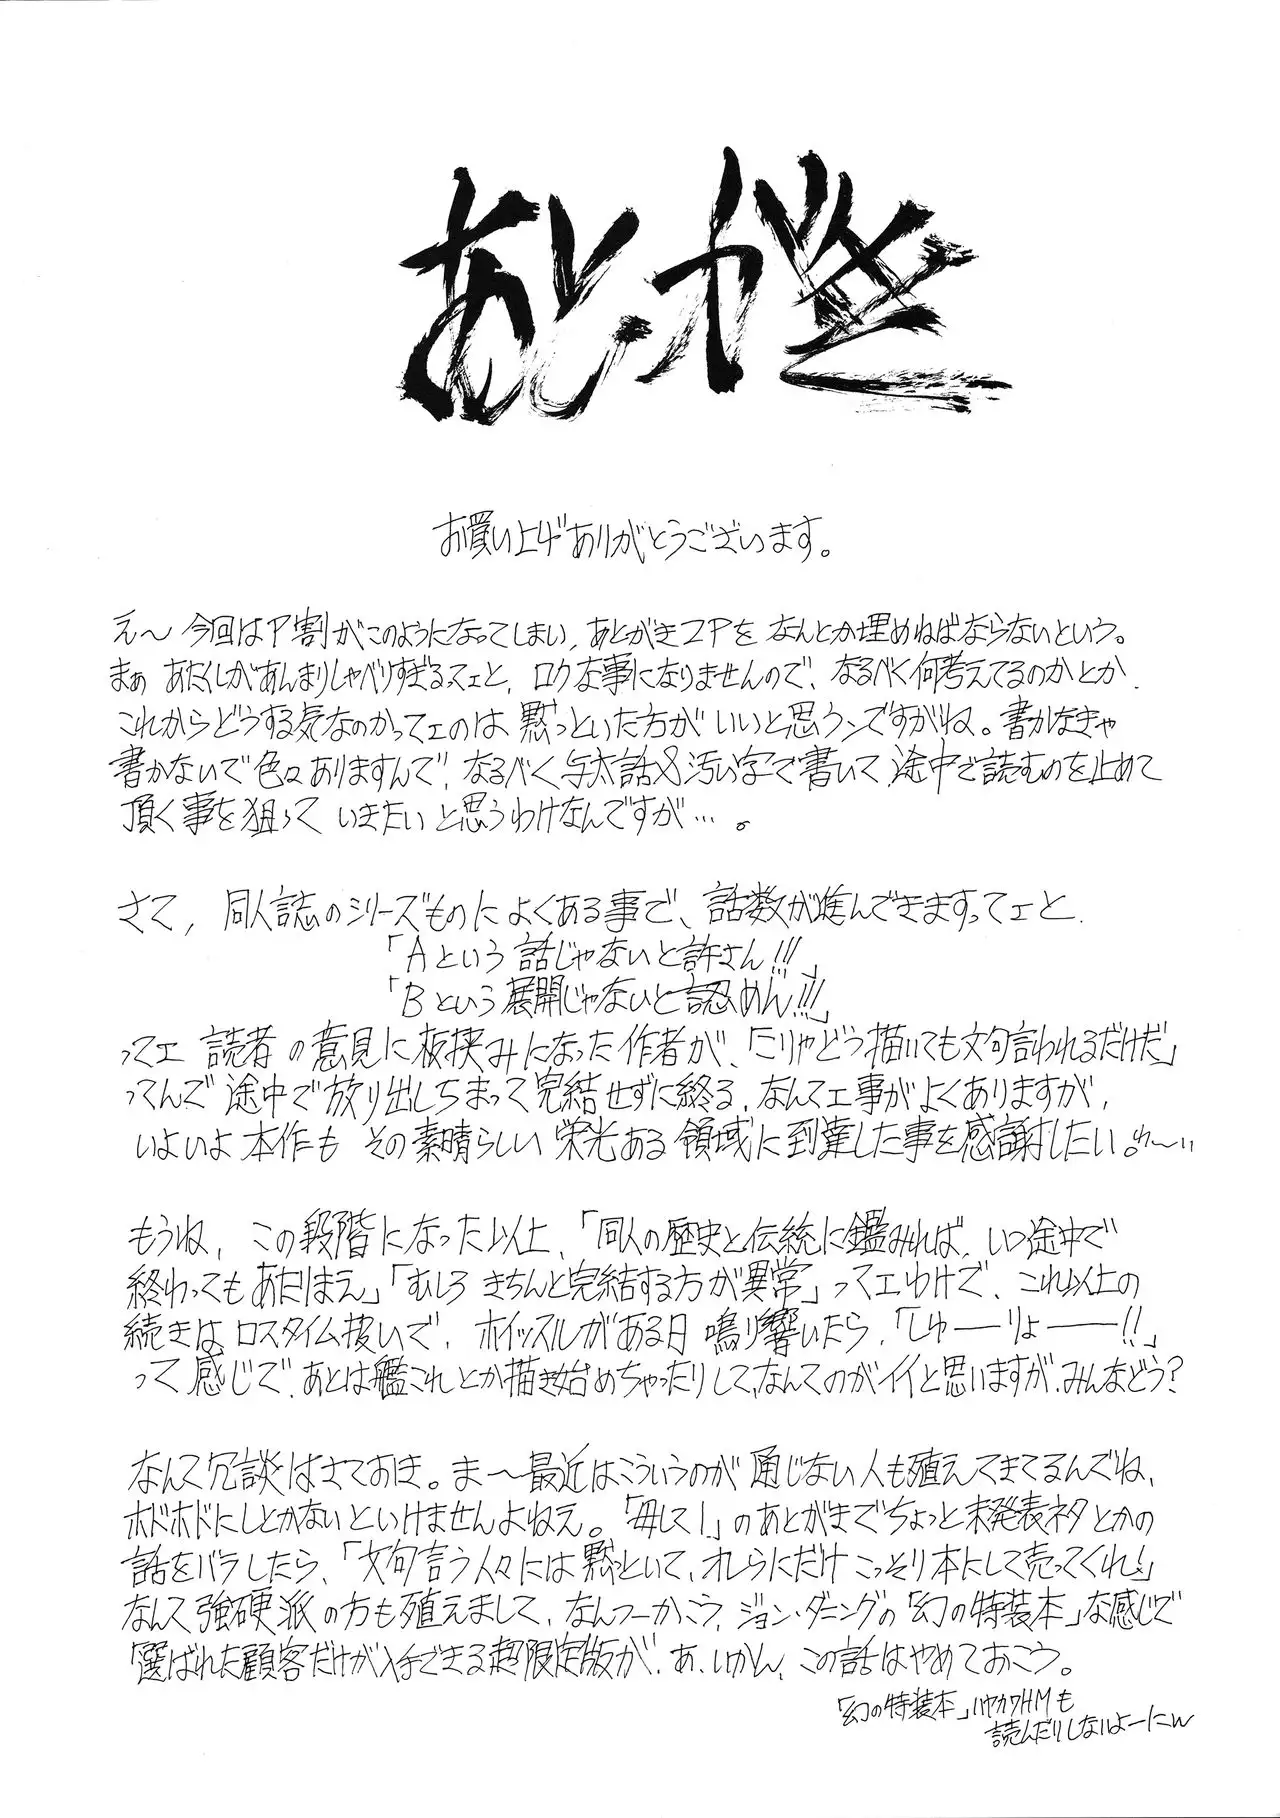 あとがき
お買い上げありがとうございます。
え〜今回はP割がこのようになってしまい、あとがき2Pをなんとか埋めねばならないという。
まぁ あたくしがあんまりしゃべりすぎるってェと、ロクな事になりませんので、なるべく何考えてるのかとか
これからどうする気なのかってェのは黙っといた方がいいと思うンですがね。書かなきゃ
書かないで色々ありますんで、なるべく与太話&汚い字で書いて途中で読むのを止めて
頂く事を狙っていきたいと思うわけなんですが…。
さて、同人誌のシリーズものによくある事で、話数が進んできますってェと、
「Aという話じゃないと許さん!!!」
「Bという展開じゃないと認めん!!!」
ってェ読者の意見に板挟みになった作者が、「こりゃどう描いても文句言われるだけだ」
ってんで途中で放り出しちまって完結せずに終る、なんてェ事がよくありますが、
いよいよ本作もその素晴らしい栄光ある領域に到達した事を感謝したい。わ〜い
もうね、この段階になった以上、「同人の歴史と伝統に鑑みれば、いつ途中で
終わってもあたりまえ」「むしろきちんと完結する方が異常」ってェわけで、これ以上の
続きはロスタイム扱いで、ホイッスルがある日鳴り響いたら、「しゅーりょー!!」
って感じで、あとは艦これとか描き始めちゃったりして、なんてのがイイと思いますが、みんなどう?
なんて冗談はさておき。ま〜最近はこういうのが通じない人も殖えてきてるんでね、
ホドホドにしとかないといけませんよねえ。「毎して!」のあとがきでちょっと未発表ネタとかの
話をバラしたら、「文句言う人々には黙っといて、オレらにだけこっそり本にして売ってくれ!」
なんて強硬派の方も殖えまして、なんつーかこう、ジョン・ダニングの「幻の特装本」な感じで
「選ばれた顧客だけが入手できる超限定版が、あ、いかん、この話はやめておこう。
「幻の特装本」ハヤカワHMも
読んだりしないよーにw